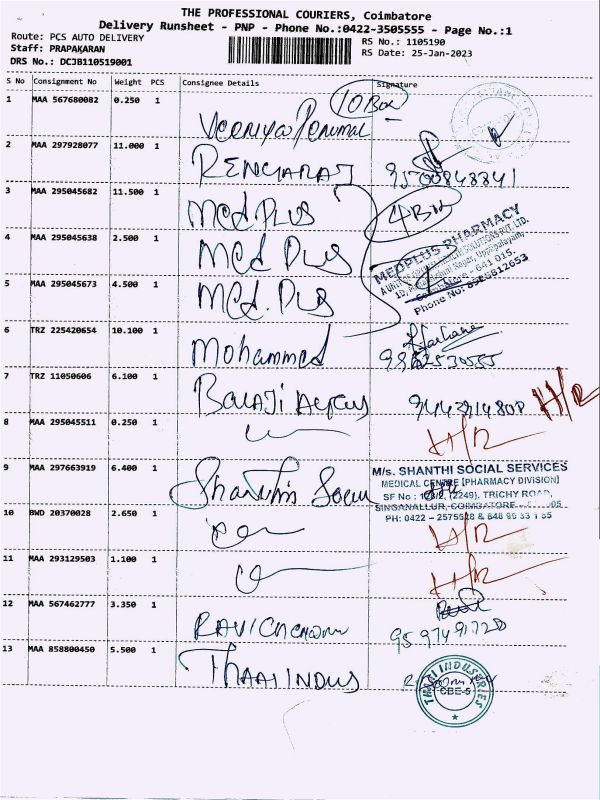 THE PROFESSIONAL COURIERS, Coimbatore
Delivery Runsheet - PNP - Phone No.:0422-3505555 - Page No.:1
Route: PCS AUTO DELIVERY
RS No.: 1105190
Staff: PRAPAKARAN
RS Date: 25-Jan-2023
DRS No.: DCJB110519001
S No Consignment No Weight PCS Consignee Details Signature
1 MAA 567680082 0.250 1 Veeriya Perumal 10 Box
2 MAA 297928077 11.000 1 RENGARAJ 9500848841
3 MAA 295045682 11.500 1 Med Plus 4 Box
MEDPLUS PHARMACY
4 MAA 295045638 2.500 1 Med Plus
641 015.
Phone No:
5 MAA 295045673 4.500 1 Med. Plus
6 TRZ 225420654 10.100 1 Mohammed
7 TRZ 11050606 6.100 1 BALAJI 9442914808 H/R
8 MAA 295045511 0.250 1 H/R
9 MAA 297663919 6.400 1 Shanthi Socw
M/s. SHANTHI SOCIAL SERVICES
MEDICAL CENTRE (PHARMACY DIVISION)
(2249), TRICHY ROAD,
SINGANALLUR, COIMBATORE
PH: 0422 - 2575528 &
10 BWD 20370028 2.650 1 H/R
11 MAA 293129503 1.100 1 H/R
12 MAA 567462777 3.350 1 9597491720
13 MAA 858800450 5.500 1 THAAI INDUS
THAAI INDUSTRIES
CBE-5